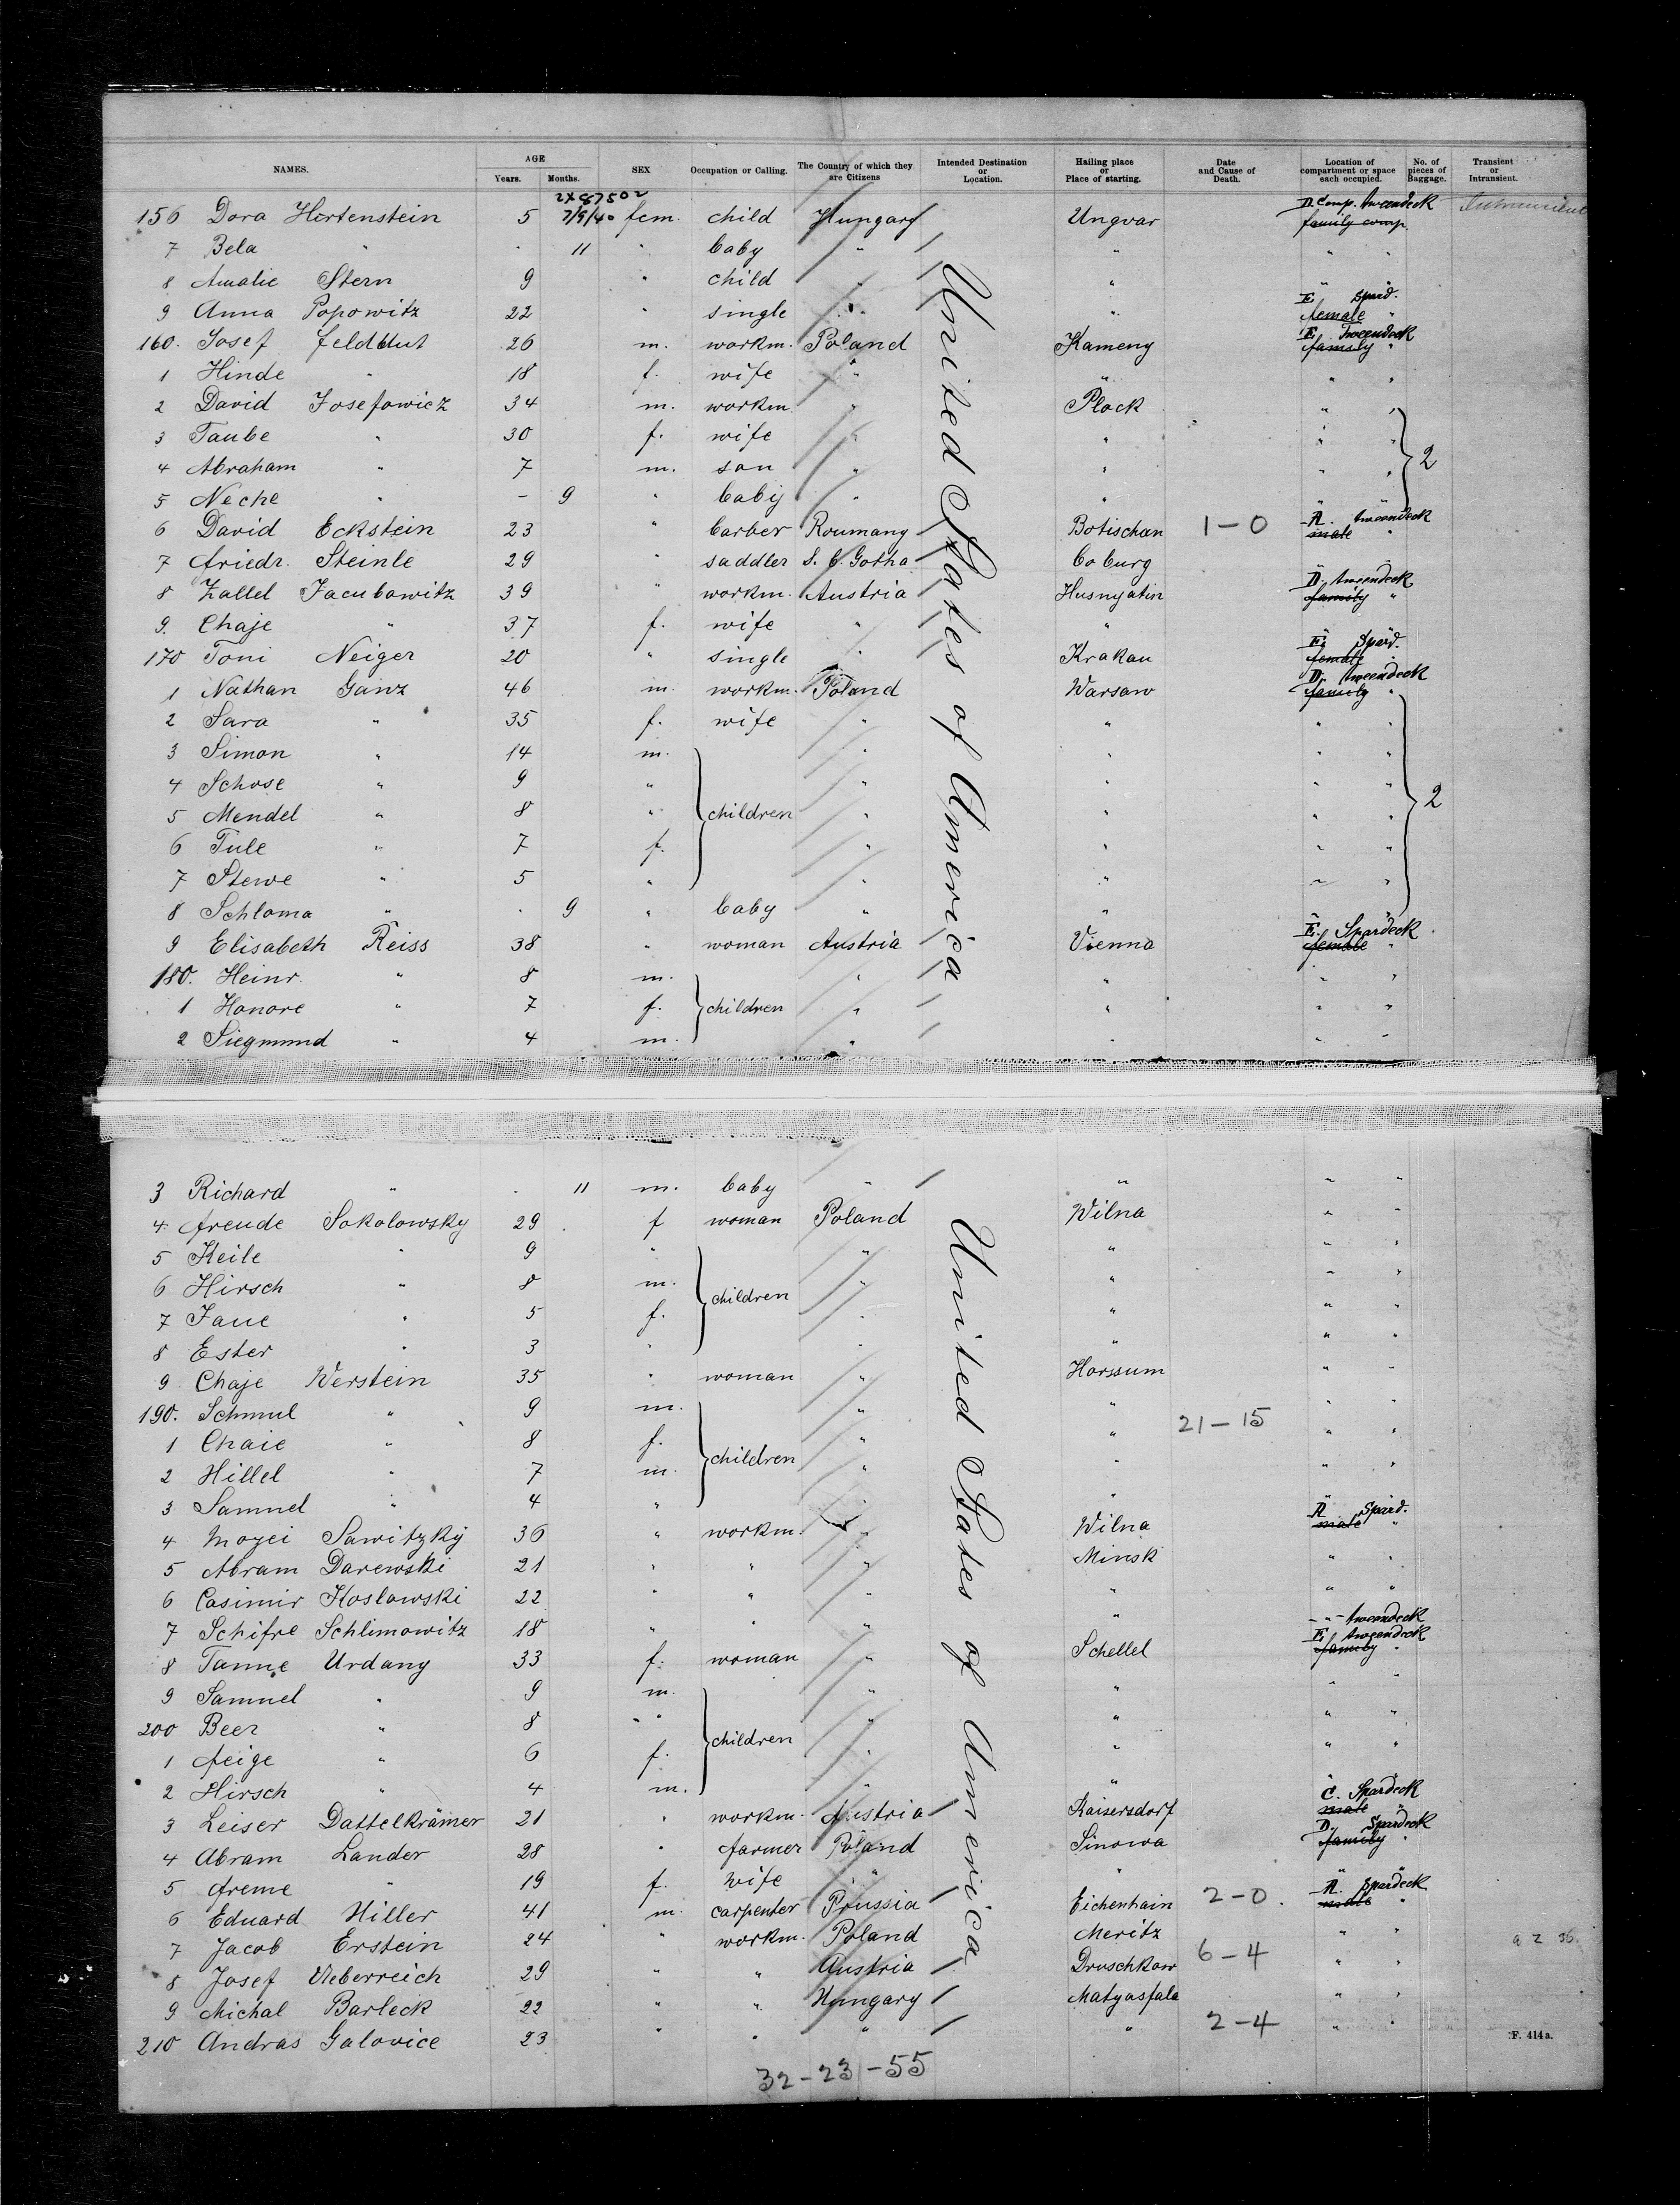 NAMES. AGE Years. Months. SEX Occupation or Calling. The Country of which they are Citizens Intended Destination or Location. Hailing place or Place of starting. Date and Cause of Death. Location of compartment or space each occupied. No. of pieces of Baggage. Transient or Intransient.
2X87502
156 Dora Hertenstein 5 7/9/40 fem. child Hungary Ungvar D Comp. tweendeck family comp.
7 Bela " . 11 " baby " " " "
8 Amalie Stern 9 " child " " " "
9 Anna Popowitz 22 " single " " E spard. female "
160. Josef Feldblut 26 m. workm. Poland Kameny E. Tweendeck family "
1 Hinde " 18 f. wife " " " "
2 David Josefowicz 34 m. workm. " Plock " "
3 Taube " 30 f. wife " " " "
4 Abraham " 7 m. son " " " " 2
5 Neche " - 9 " baby " " " "
6 David Eckstein 23 " barber Roumany Botischan 1-0 A. tweendeck male "
7 Friedr. Steinle 29 " saddler S. C. Gotha Coburg " "
8 Zallel Jacubowitz 39 " workm. Austria Husnyatin D. tweendeck family "
9. Chaje " 37 f. wife " " " "
170 Toni Neiger 20 " single " Krakau E. Spard. female "
1 Nathan Ganz 46 m. workm. Poland Warsaw D. tweendeck family "
2 Sara " 35 f. wife " " " "
3 Simon " 14 m. " " " "
4 Schose " 9 " " " " "
5 Mendel " 8 " children " " " " 2
6 Tule " 7 f. " " " "
7 Stewe " 5 " " " " "
8 Schloma " . 9 " baby " " " "
9 Elisabeth Reiss 38 " woman Austria Vienna E. Spardeck female "
180. Heinr. " 8 m. " " " "
1 Honore " 7 f. children " " " "
2 Siegmund " 4 m. " " " "
United States of America
3 Richard " . 11 m. baby " " " "
4 Freude Sokolowsky 29 f woman Poland Wilna " "
5 Keile " 9 " " " " "
6 Hirsch " 8 m. children " " " "
7 Jane " 5 f. " " " "
8 Ester " 3 " " " " "
9 Chaje Werstein 35 " woman " Horssum " "
190. Schmul " 9 m. " " 21-15 " "
1 Chaie " 8 f. " " " "
2 Hillel " 7 m. children " " " "
3 Samuel " 4 " " " " "
4 Moyei Sawitzky 36 " workm. " Wilna A Spard. male "
5 Abram Darewski 21 " " " Minsk " "
6 Casimir Koslowski 22 " " " " " "
7 Schifre Schlimowitz 18 " " " " -"- tweendeck
8 Tanne Urdany 33 f. woman " Schellel E. tweendeck family "
9 Samuel " 9 m. " " " "
200 Beer " 8 " " " " " "
1 Feige " 6 f. children " " " "
2 Hirsch " 4 m. " " " "
3 Leiser Dattelkrämer 21 " workm. Austria Kaisersdorf C. Spardeck male "
4 Abram Lander 28 " farmer Poland Sinowa D. Spardeck family "
5 Freme " 19 f. wife " " " "
6 Eduard Hiller 41 m. carpenter Prussia Eichenhain 2-0. A. Spardeck male "
7 Jacob Erstein 24 " workm. Poland Meritz " "
8 Josef Ueberreich 29 " " Austria Druschkow 6-4 " "
9 Michal Barleck 22 " " Hungary Matyasfala " "
210 Andras Galovice 23 " " " " 2-4 " "
United States of America
F. 414a.
32-23-55